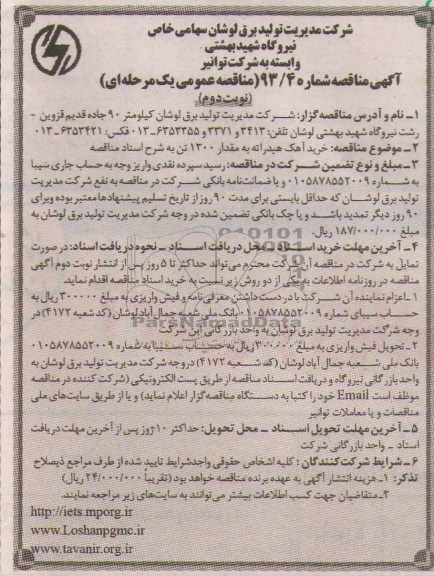 شرکت مدیریت تولید برق لوشان سهامی خاص
نیروگاه شهید بهشتی
وابسته به شرکت توانیر
آگهی مناقصه شماره ۹۳/۴ (مناقصه عمومی یک مرحله‌ای)
(نوبت دوم)
۱- نام و آدرس مناقصه گزار: شرکت مدیریت تولید برق لوشان کیلومتر ۹۰ جاده قدیم قزوین -
رشت نیروگاه شهید بهشتی لوشان تلفن: ۳۴۱۳ و ۳۳۷۱ و ۶۳۵۳۳۵۵-۰۱۳ فکس: ۶۳۵۳۴۲۱-۰۱۳
۲- موضوع مناقصه: خرید آهک هیدراته به مقدار ۱۳۰۰ تن به شرح اسناد مناقصه
۳- مبلغ و نوع تضمین شرکت در مناقصه: رسید سپرده نقدی واریز وجه به حساب جاری سیبا
به شماره ۰۱۰۵۸۷۸۵۵۲۰۰۹ و یا ضمانت‌نامه بانکی شرکت در مناقصه به نفع شرکت مدیریت
تولید برق لوشان که حداقل بایستی برای مدت ۹۰ روز از تاریخ تسلیم پیشنهادها معتبر بوده و برای
۹۰ روز دیگر تمدید باشد و یا چک بانکی تضمین شده در وجه شرکت مدیریت تولید برق لوشان به
مبلغ ۱۸۷/۰۰۰/۰۰۰ ریال.
۴- آخرین مهلت خرید اسناد - محل دریافت اسناد - نحوه دریافت اسناد: در صورت
تمایل به شرکت در مناقصه آن شرکت محترم می‌تواند حداکثر تا ۵ روز پس از انتشار نوبت دوم آگهی
مناقصه در روزنامه اطلاعات به یکی از دو روش زیر نسبت به خرید اسناد مناقصه اقدام نماید.
۱- اعزام نماینده آن شرکت با در دست داشتن معرفی‌نامه و فیش واریزی به مبلغ ۳۰۰۰۰۰ ریال به
حساب سیبای شماره ۰۱۰۵۸۷۸۵۵۲۰۰۹ بانک ملی شعبه جمال آباد لوشان (کد شعبه ۴۱۷۲) در
وجه شرکت مدیریت تولید برق لوشان به واحد بازرگانی این شرکت
۲- تحویل فیش واریزی به مبلغ ۳۰۰۰۰۰ ریال به حساب سیبا به شماره ۰۱۰۵۸۷۸۵۵۲۰۰۹
بانک ملی شعبه جمال آباد لوشان (کد شعبه ۴۱۷۲) در وجه شرکت مدیریت تولید برق لوشان به
واحد بازرگانی نیروگاه و دریافت اسناد مناقصه از طریق پست الکترونیکی (شرکت کننده در مناقصه
موظف است Email خود را کتبا به دستگاه مناقصه‌گزار اعلام نماید) و یا از طریق سایت‌های ملی
مناقصات و یا معاملات توانیر
۵- آخرین مهلت تحویل اسناد - محل تحویل: حداکثر ۱۰ روز پس از آخرین مهلت دریافت
اسناد - واحد بازرگانی شرکت
۶- شرایط شرکت کنندگان: کلیه اشخاص حقوقی واجد شرایط تایید شده از طرف مراجع ذیصلاح
تذکر: ۱- هزینه انتشار آگهی به عهده برنده مناقصه خواهد بود (تقریباً ۲۴/۰۰۰/۰۰۰ ریال)
۲- متقاضیان جهت کسب اطلاعات بیشتر می‌توانند به سایت‌های زیر مراجعه نمایند.
http://iets.mporg.ir
www.Loshanpgmc.ir
www.tavanir.org.ir
ParsNamadData